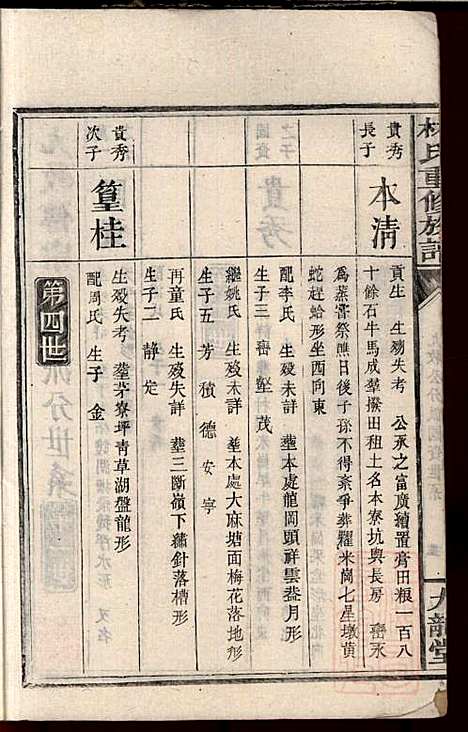 林氏重修族譜
九龍堂
貴秀
長子
本清
貢生 生殁失考 公承之富廣續置膏田粮一百八
十餘石牛馬成羣撥田租土名本寮坑與長房 巒永
為蒸嘗祭醮日後子孫不得紊爭葬糶米崗七星墩黄
蛇趕蛤形坐西向東
配李氏 生殁未詳 塟本處龍岡頭祥雲盎月形
生子三 巒 壑 茂
繼姚氏 生殁未詳 塟本處大麻塘面梅花落地形
生子五 芳 積 德 安 寧
再童氏 生殁失詳 塟三断嶺下繡針落槽形
生子二 靜 定
貴秀
次子
篁桂
生殁失考 塟茅寮坪青草湖盤龍形
配周氏 生子 金
第四世